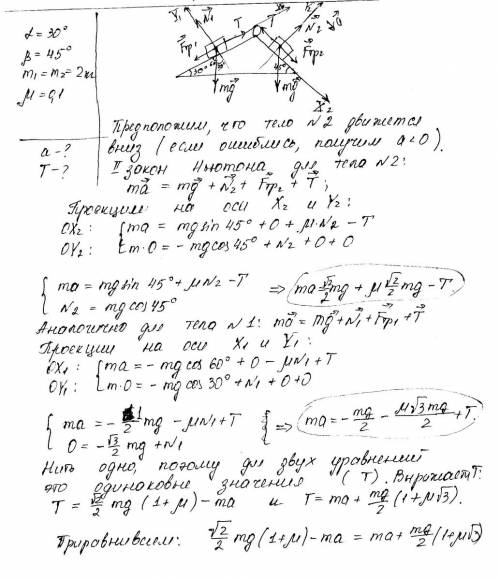 α = 30°
β = 45°
m₁ = m₂ = 2кг
μ = 0,1
a - ?
T - ?
Y₁ N₁ T T Y₂ N₂ a
Fтр₁ Fтр₂
30° 60° 45°
mg mg X₂
Предположим, что тело N2 движется
вниз (если ошиблись, получим a<0).
II закон Ньютона для тела N2:
ma = mg + N₂ + Fтр₂ + T;
Проекции на оси X₂ и Y₂:
OX₂: { ma = mg sin 45° + 0 + μ·N₂ - T
OY₂: { m·0 = - mg cos 45° + N₂ + 0 + 0
{ ma = mg sin 45° + μN₂ - T ⇒ ma √2/2 mg + μ √2/2 mg - T
{ N₂ = mg cos 45°
Аналогично для тела N1: ma = mg + N₁ + Fтр₁ + T
Проекции на оси X₁ и Y₁:
OX₁: { ma = - mg cos 60° + 0 - μN₁ + T
OY₁: { m·0 = - mg cos 30° + N₁ + 0 + 0
{ ma = - 1/2 mg - μN₁ + T } ⇒ ma = - mg/2 - μ√3mg/2 + T
{ 0 = - √3/2 mg + N₁
Нить одно, потому для звух уравнений
это одинаковые значения (T). Выражаем T:
T = √2/2 mg (1 + μ) - ma и T = ma + mg/2 (1 + μ√3).
Приравниваем: √2/2 mg (1 + μ) - ma = ma + mg/2 (1 + μ√3)